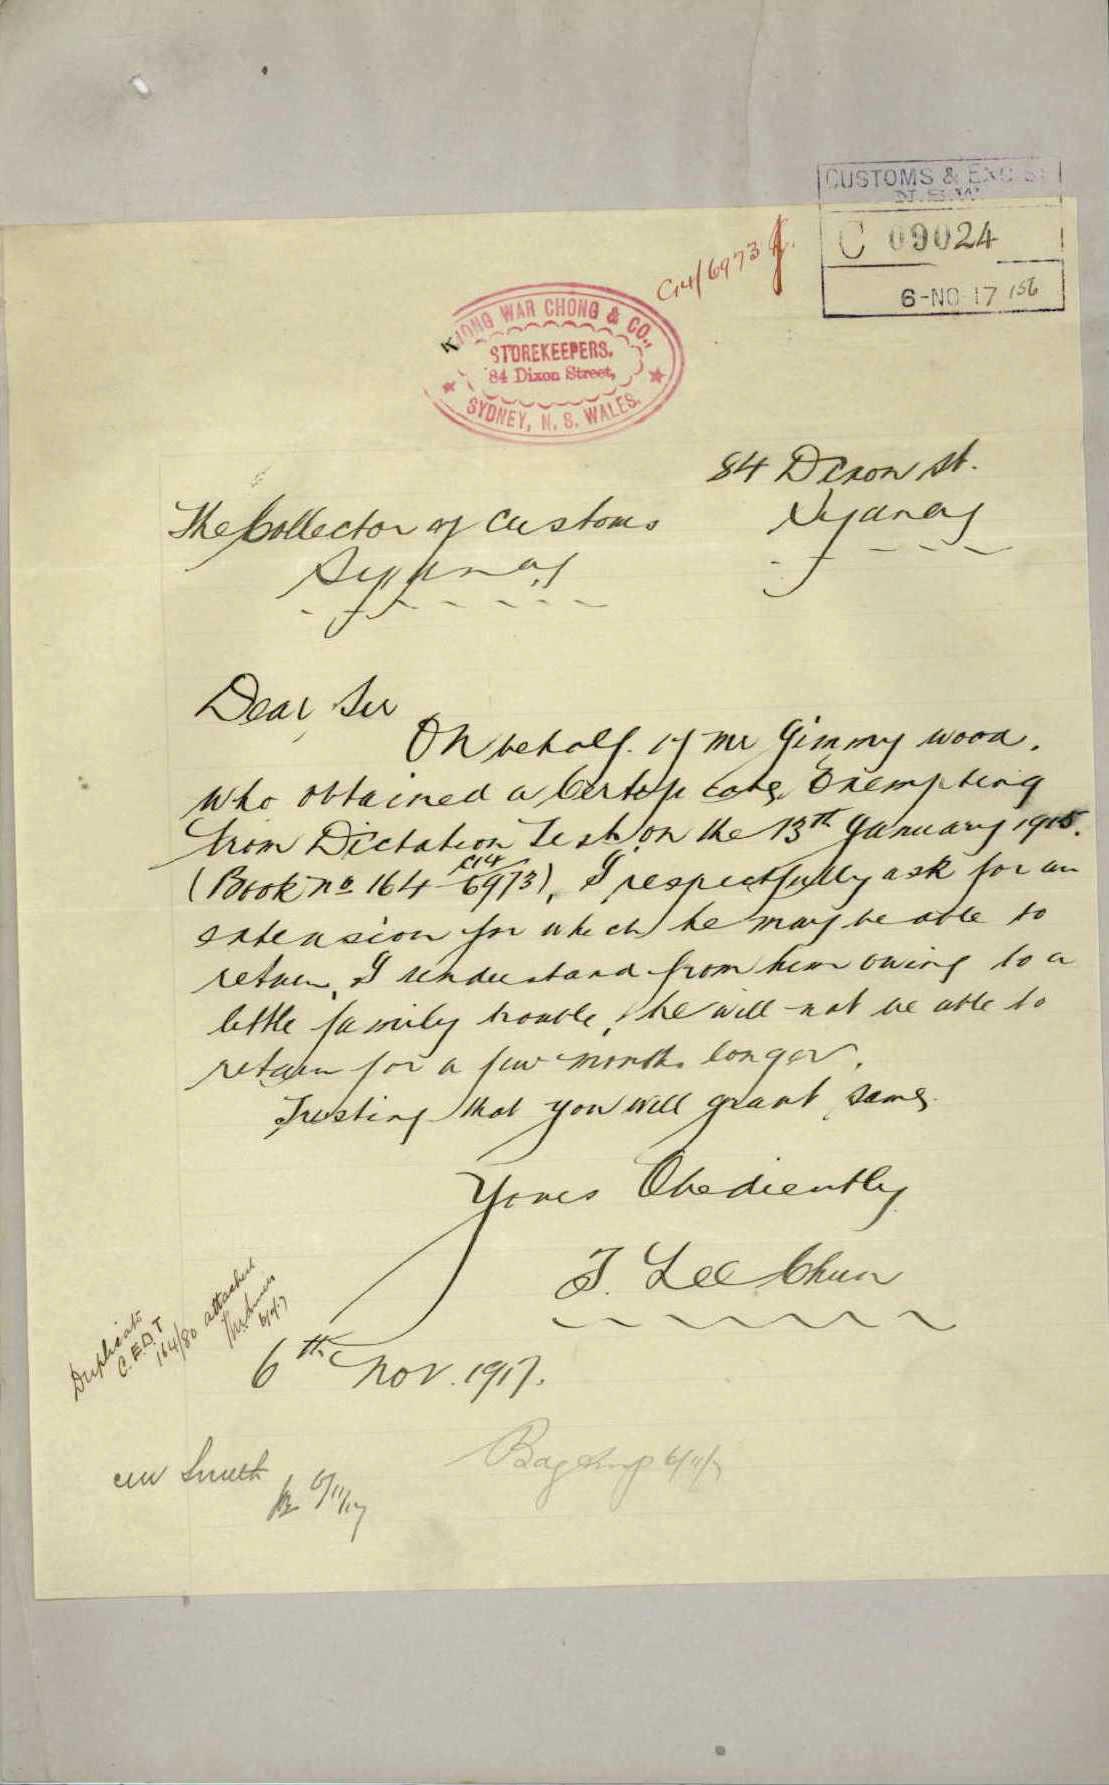 CUSTOMS & EXCISE
N.S.W.
C 09024
6-NO 17 1st
C14/6973
KWONG WAR CHONG & CO.,
STOREKEEPERS.
84 Dixon Street,
SYDNEY, N. S. WALES.
84 Dixon St.
Sydney
The Collector of Customs
Sydney
Dear Sir
On behalf of Mr Gimmy Wood.
who obtained a Certificate Exempting
from Dictation Test on the 13th January 1915.
(Book No 164 C14/6973), I respectfully ask for an
extension for which he may be able to
return, I understand from him owing to a
little family trouble, he will not be able to
return for a few months longer.
Trusting that you will grant same
Yours Obediently
T. Lee Chun
6th Nov. 1917.
Duplicate
C.E.D.T
164/80 attached
6/11/17
Smith
6/11/17
6/11/17